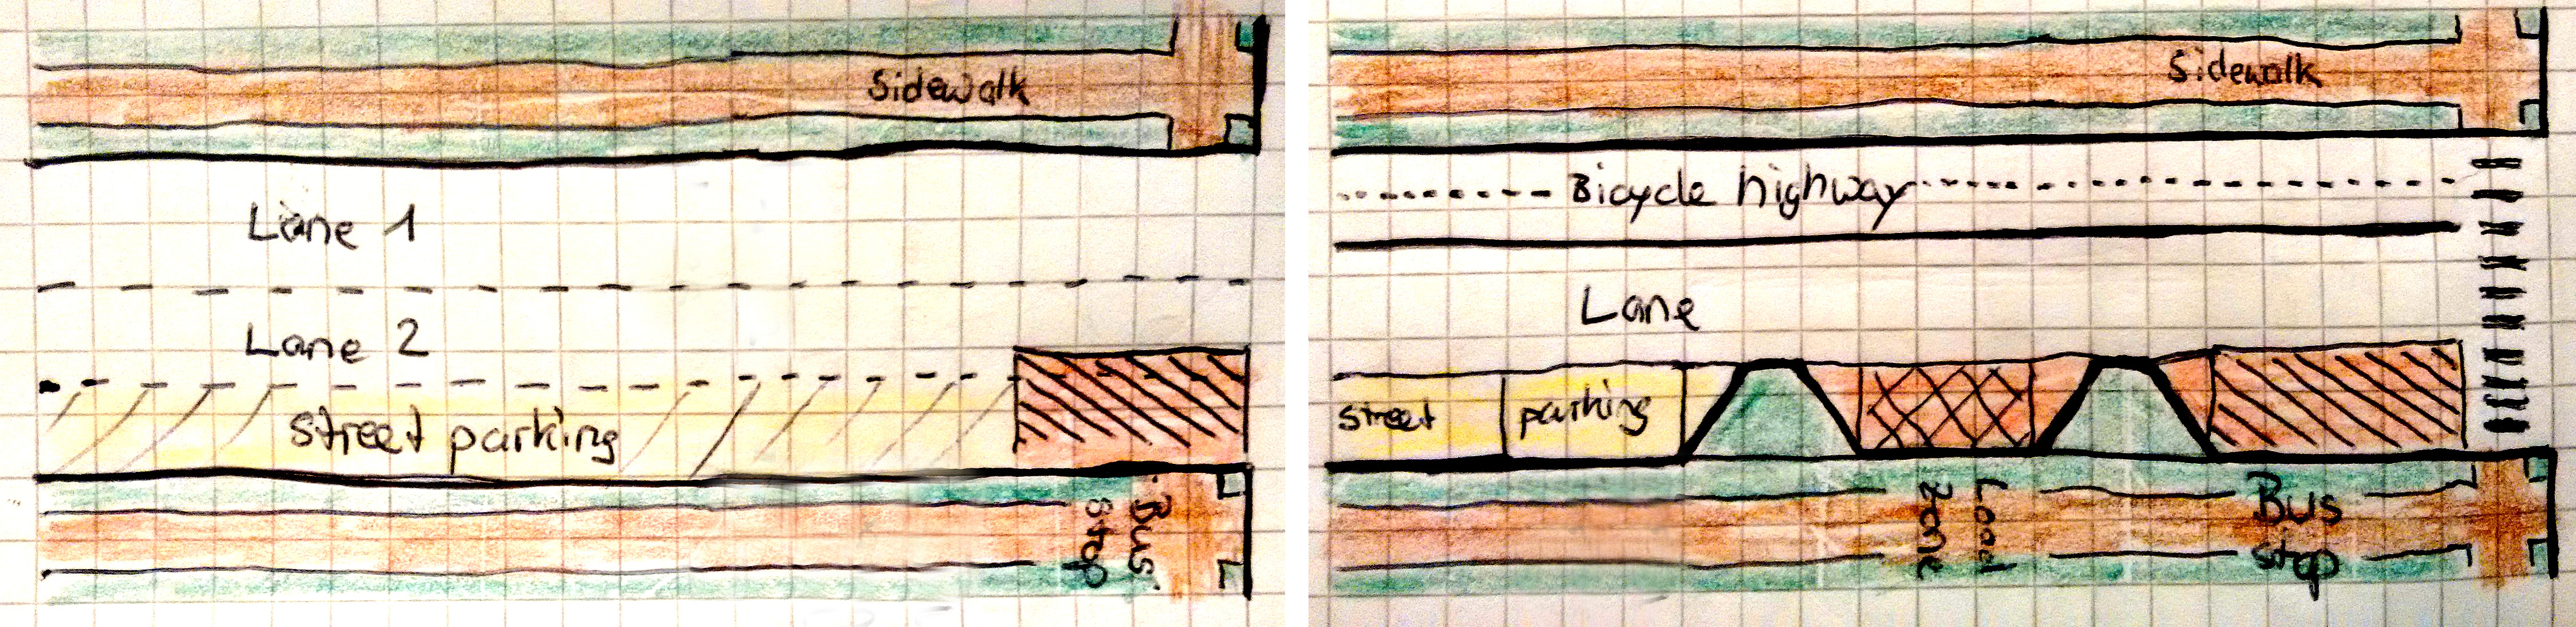 Sidewalk
Lane 1
Lane 2
Street parking
Bus
Stop
Sidewalk
Bicycle highway
Lane
Street parking
Load
Zone
Bus
stop